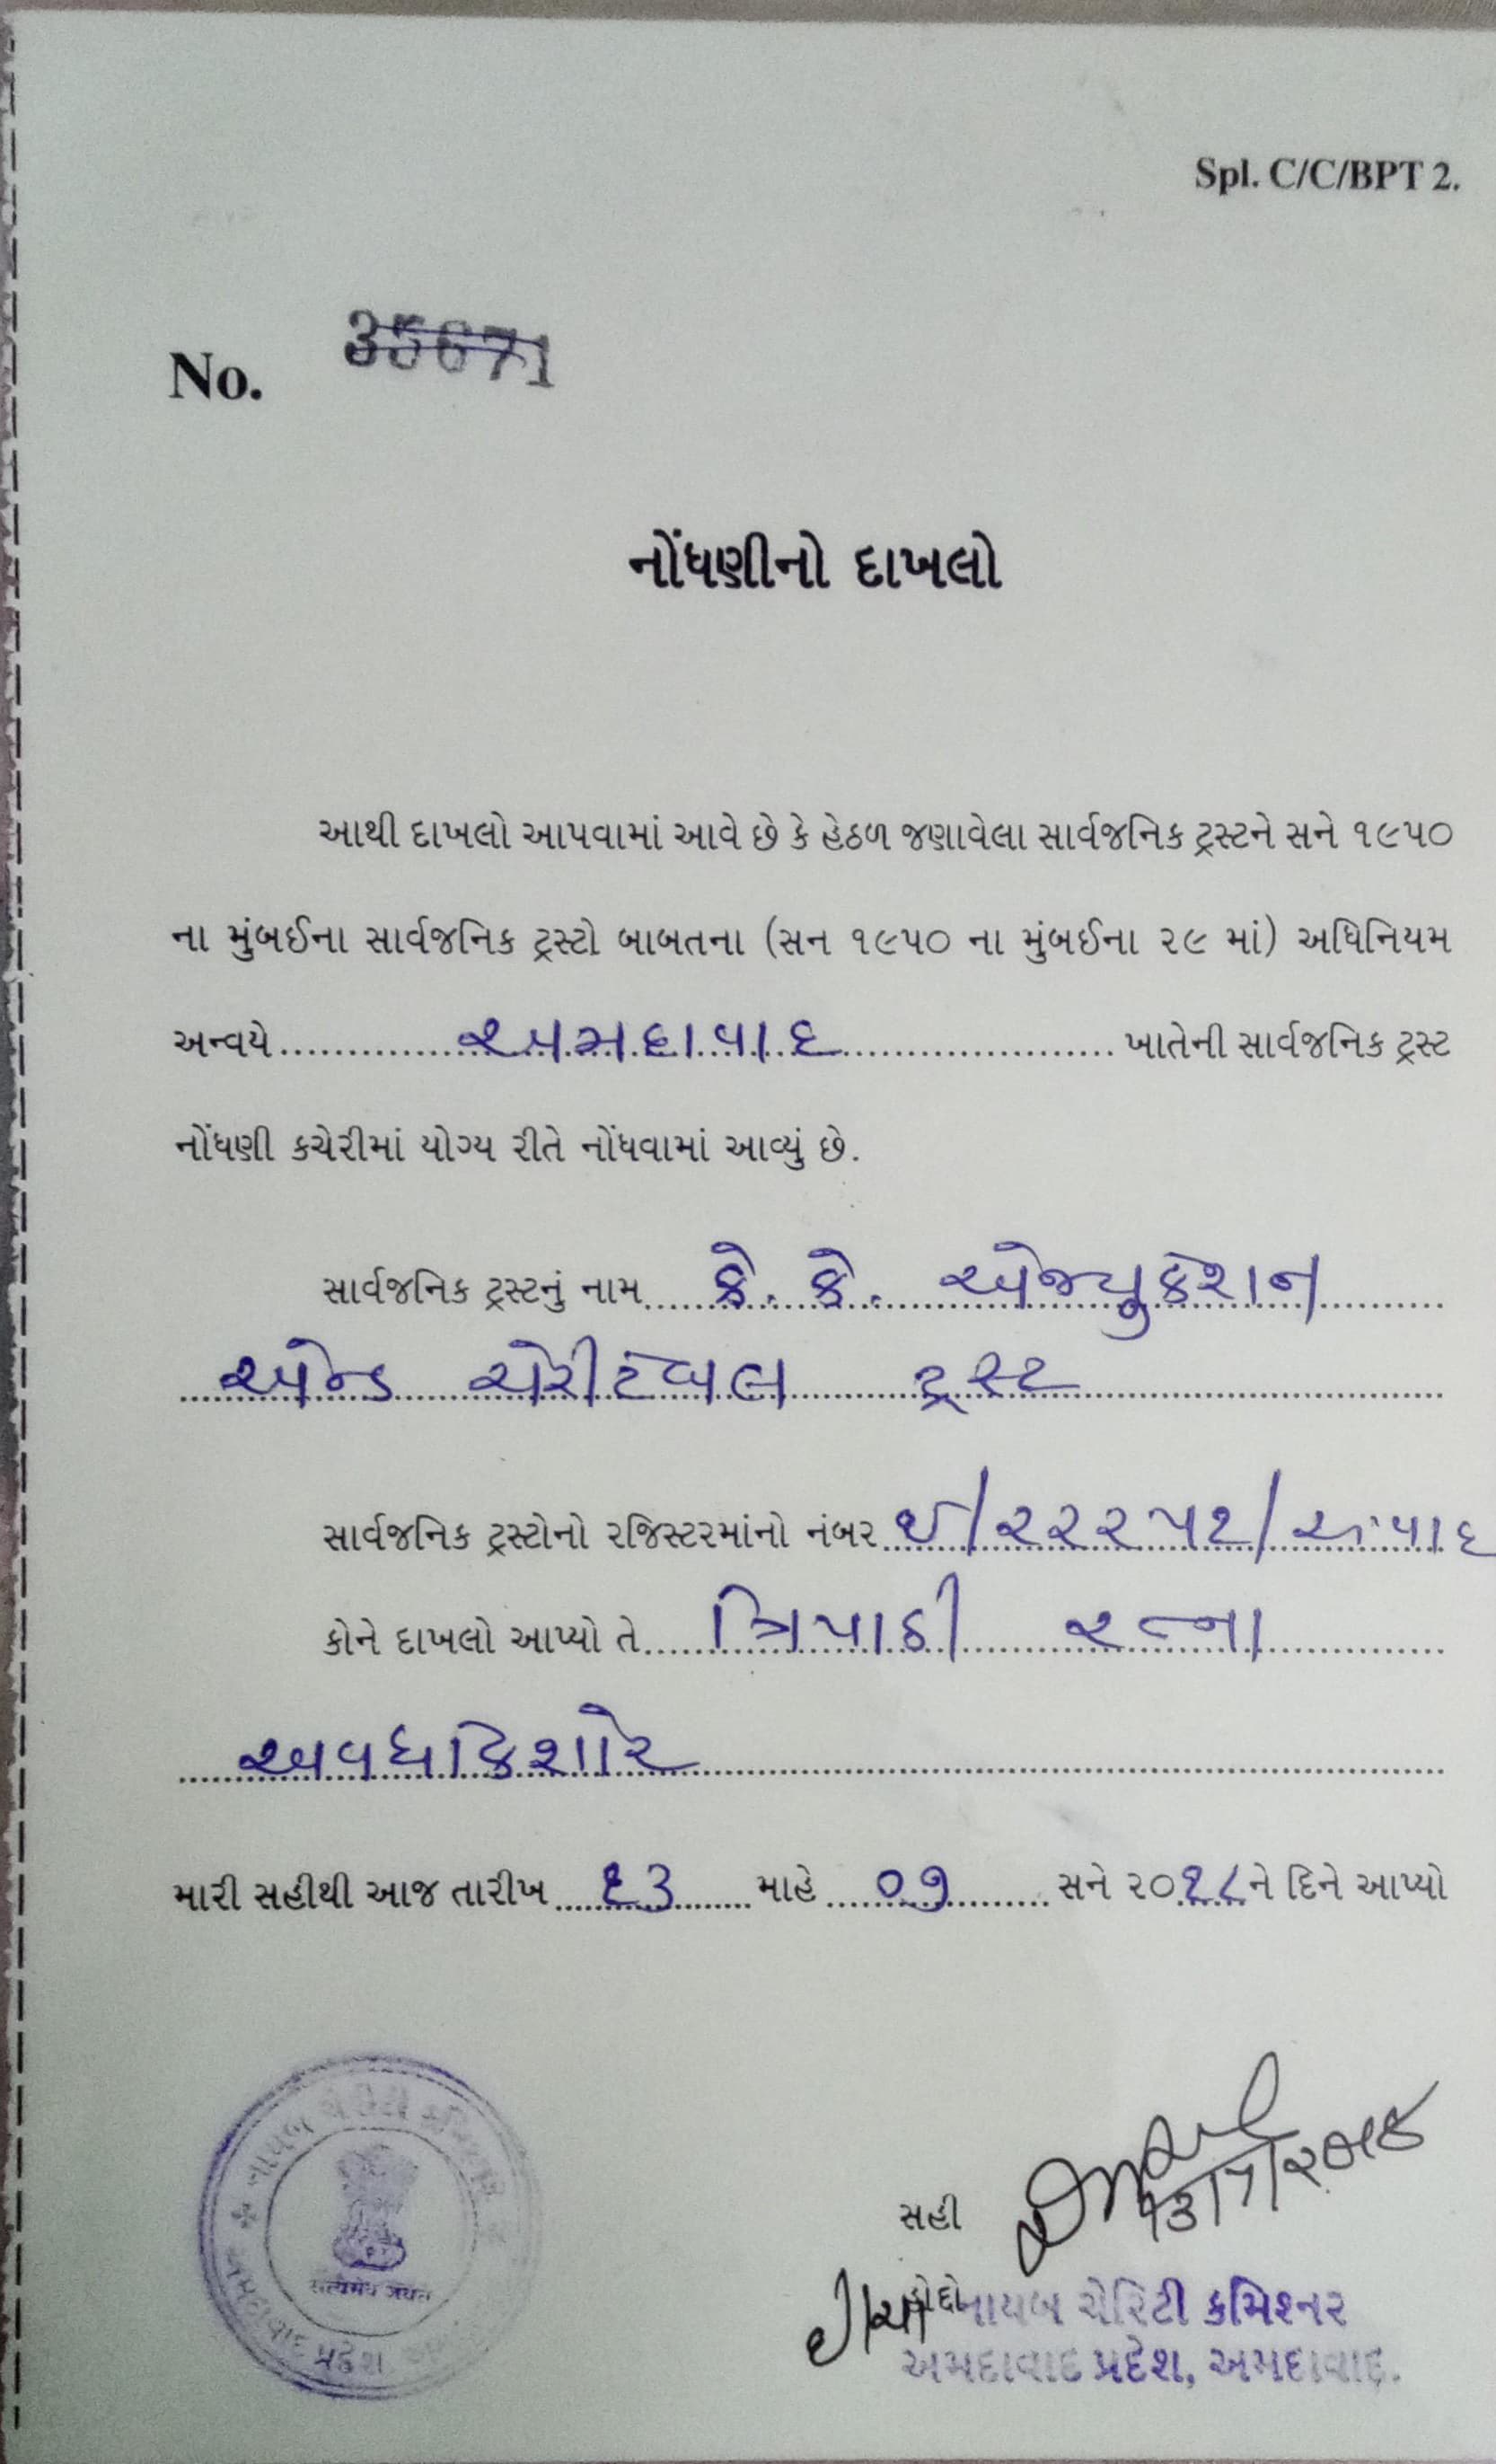 Spl. C/C/BPT 2.
No. 35671
નોંધણીનો દાખલો
આથી દાખલો આપવામાં આવે છે કે હેઠળ જણાવેલા સાર્વજનિક ટ્રસ્ટને સને ૧૯૫૦
ના મુંબઈના સાર્વજનિક ટ્રસ્ટો બાબતના (સન ૧૯૫૦ ના મુંબઈના ૨૯ માં) અધિનિયમ
અન્વયે અમદાવાદ ખાતેની સાર્વજનિક ટ્રસ્ટ
નોંધણી કચેરીમાં યોગ્ય રીતે નોંધવામાં આવ્યું છે.
સાર્વજનિક ટ્રસ્ટનું નામ કે. કે. એજ્યુકેશન
એન્ડ ચેરીટેબલ ટ્રસ્ટ
સાર્વજનિક ટ્રસ્ટોનો રજિસ્ટરમાંનો નંબર ઈ/૨૨૨૫૧/અ'વાદ
કોને દાખલો આપ્યો તે ત્રિપાઠી રત્ના
અવધકિશોર
મારી સહીથી આજ તારીખ ૧૩ માહે ૦૭ સને ૨૦૧૮ ને દિને આપ્યો
સહી ૧૩/૭/૨૦૧૮
હોદ્દો નાયબ ચેરિટી કમિશ્નર
અમદાવાદ પ્રદેશ, અમદાવાદ.
નાયબ ચેરીટી કમિશ્નર
सत्यमेव जयते
અમદાવાદ પ્રદેશ